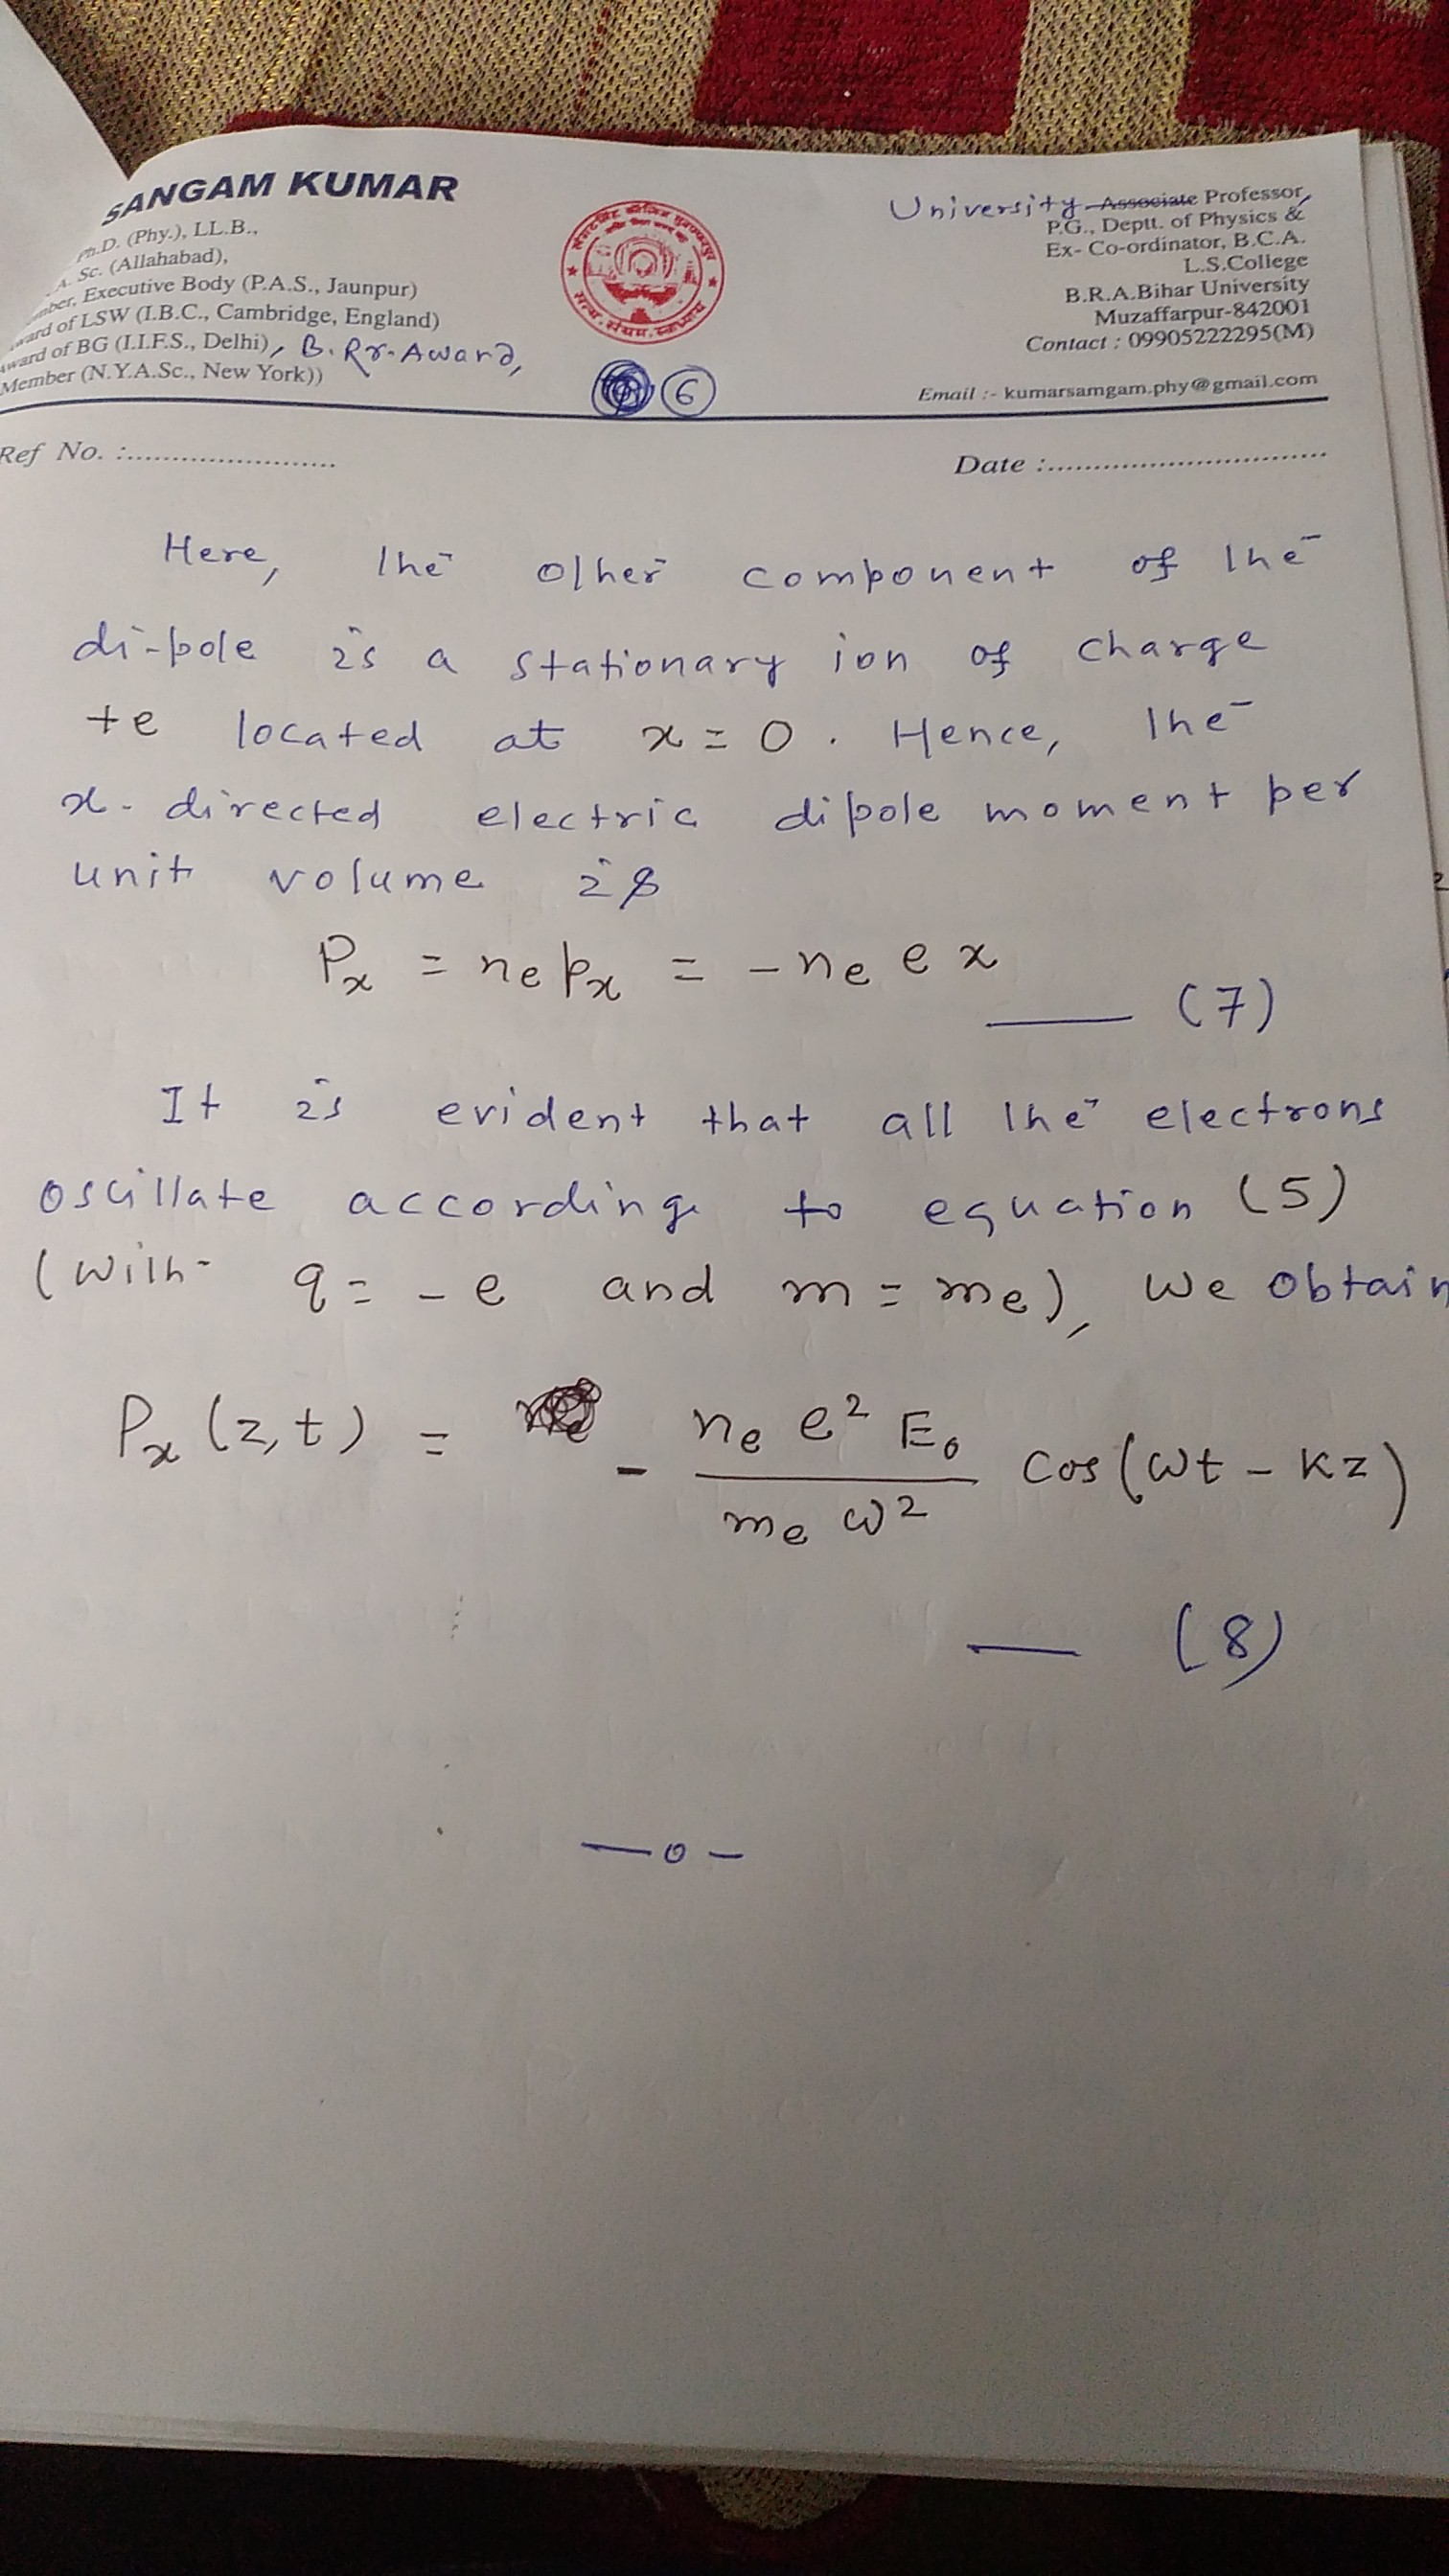 SANGAM KUMAR
Ph.D. (Phy.), LL.B.,
Sc. (Allahabad),
Executive Body (P.A.S., Jaunpur)
of LSW (I.B.C., Cambridge, England)
of BG (I.I.F.S., Delhi), B. Rr. Award,
Member (N.Y.A.Sc., New York))
6
University Associate Professor,
P.G., Deptt. of Physics &
Ex- Co-ordinator, B.C.A.
L.S.College
B.R.A.Bihar University
Muzaffarpur-842001
Contact : 09905222295(M)
Email :- kumarsamgam.phy@gmail.com
Ref No. :........................
Date :...............................
Here, the other component of the
di-pole is a stationary ion of charge
+e located at x = 0. Hence, the
x-directed electric dipole moment per
unit volume is
Pₓ = nₑ pₓ = - nₑ e x
—— (7)
It is evident that all the electrons
oscillate according to equation (5)
(with q = - e and m = mₑ), we obtain
Pₓ (z, t) = - nₑ e² E₀ / mₑ ω² cos(ωt - Kz)
— (8)
—o—